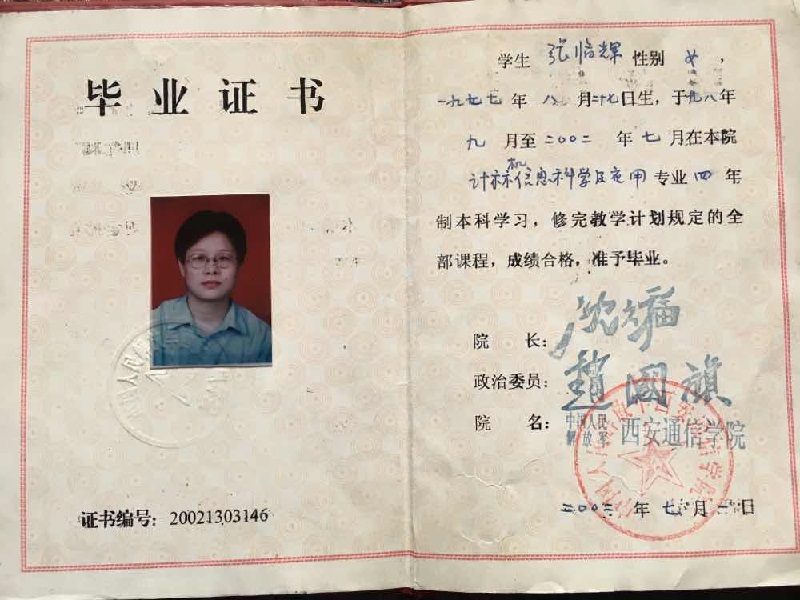 毕业证书
证书编号：20021303146
学生 张 辉 性别 女，
一九七七年八月二十七日生，于九八年
九月至二〇〇二年七月在本院
计算机信息科学及应用专业四年
制本科学习，修完教学计划规定的全
部课程，成绩合格，准予毕业。
院 长：
政治委员：趙國旗
院 名：中国人民解放军西安通信学院
二〇〇二年七月一日